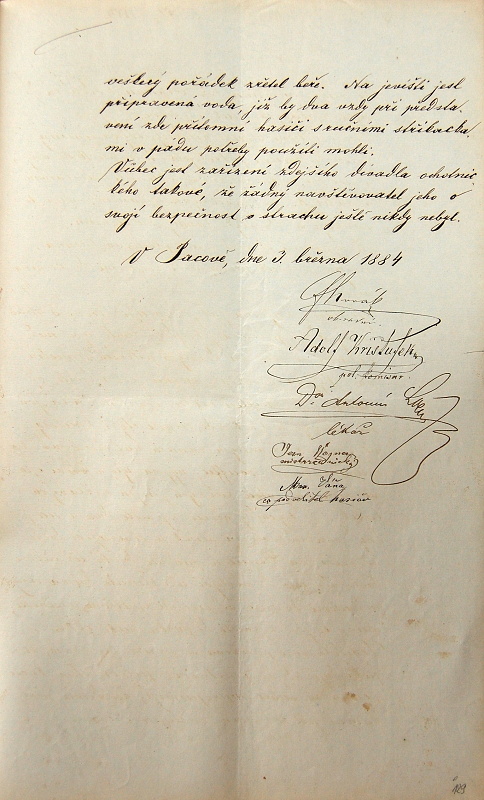 veškerý pořádek zřetel béře. Na jevišti jest
připravená voda, již by dva vždy při předsta-
vení zde přítomní hasiči s ručními stříkačka-
mi v pádu potřeby použíti mohli.
Vůbec jest zařízení zdejšího divadla ochotnic-
kého takové, že žádný navštěvovatel jeho o
svoji bezpečnost v strachu ještě nikdy nebyl.
V Pacově, dne 3. března 1884
Adolf
pol. komisar.
Dr. Antonín
lékář
Jan
Váňa
co podvelitel hasičů
129